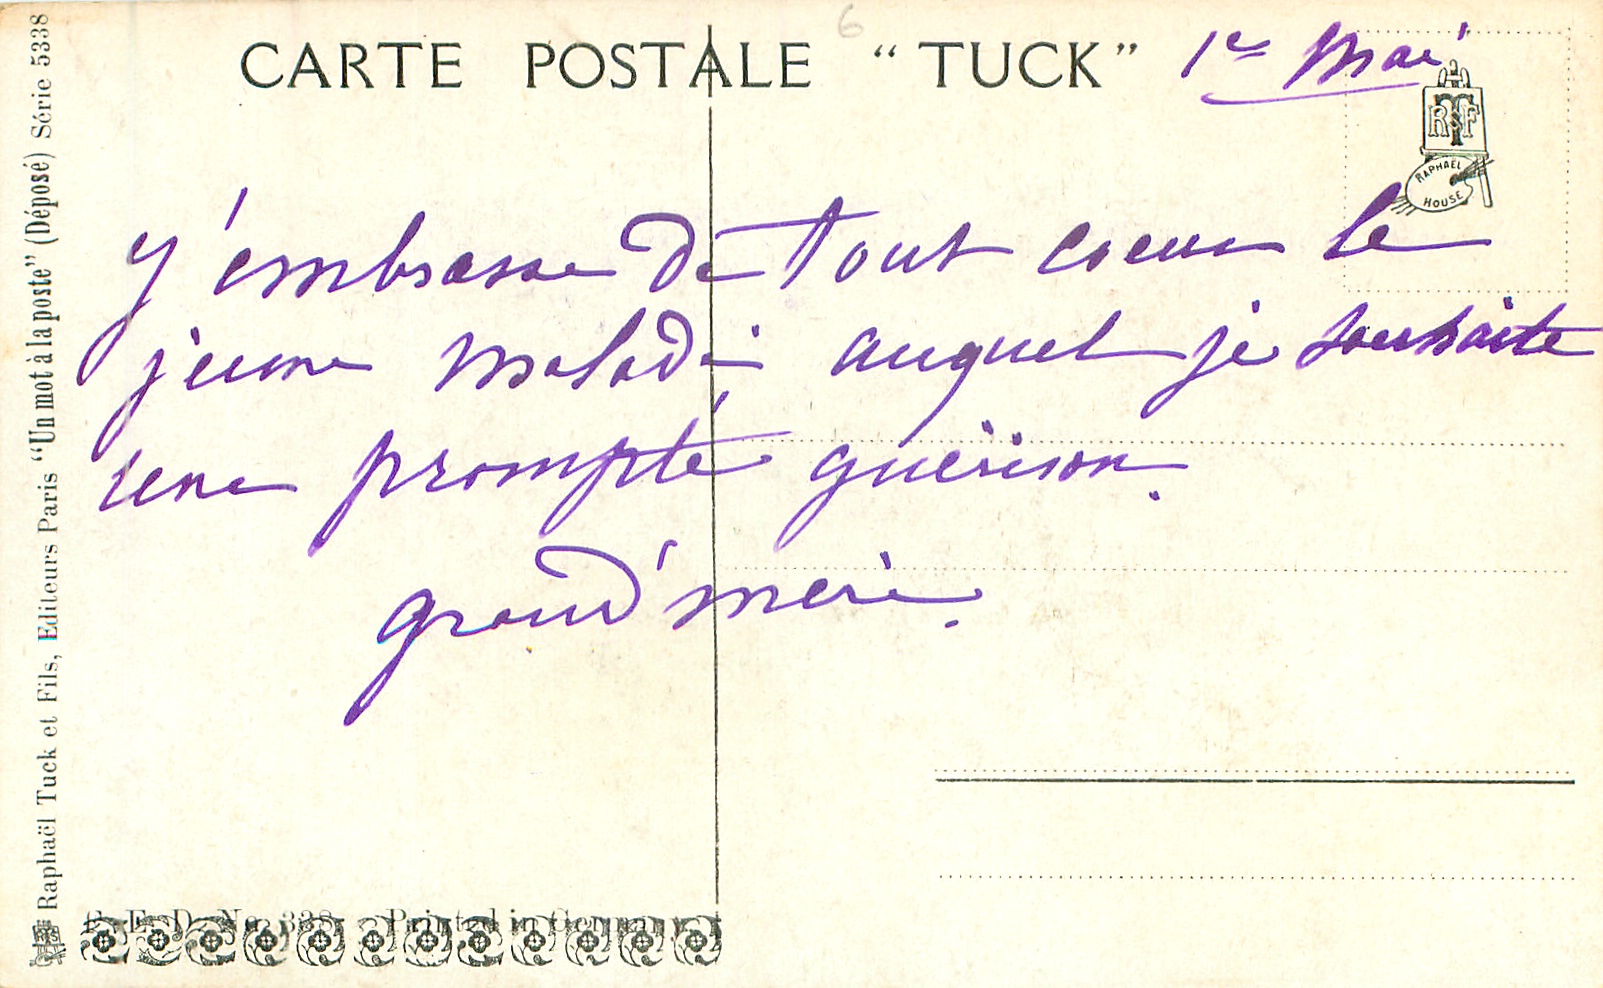 6
CARTE POSTALE “TUCK”
1er Mai
R T F
RAPHAEL
HOUSE
J'embrasse de tout coeur le
jeune malade auquel je souhaite
une prompte guérison.
grand'mère.
Raphaël Tuck et Fils, Editeurs Paris “Un mot à la poste” (Déposé) Série 5338
No. 338. Printed in Germany